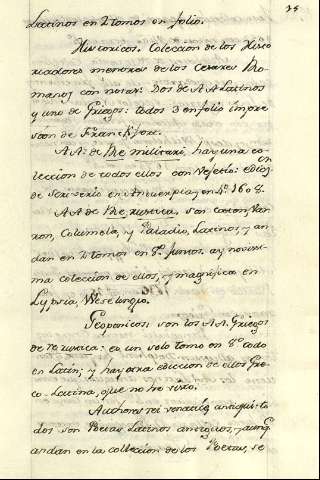 35
Latinos en 2 tomos en folio.
Historicos. Coleccion de los Histo
riadores menores de los Cesares Ro-
manos con notas: Dos de AA Latinos
y uno de Griegos: todos 3 en folio impre
sion de Franckfort.
AA. de Re militari, hay una co-
leccion de todos ellos con Vegetio: edicion
de Scriverio en Antuerpia, en 4º 1608.
AA de Re rustica, son Caton, Var
ron, Columela, y Paladio, Latinos, y an
dan en 2 tomos en 8º juntos. ay novissi
ma coleccion de ellos, y magnifica en
Lypsia,
Geoponicos son los AA. Griegos
de re rustica: en un solo tomo en 8º todo
en Latin; y hay otra edicion de ellos Gre
co-Latina, que no he visto.
Authores rei venaticæ antiqui: to
dos son Poetas Latinos antiguos, y aunq.
andan en la collection de los Poetas, se